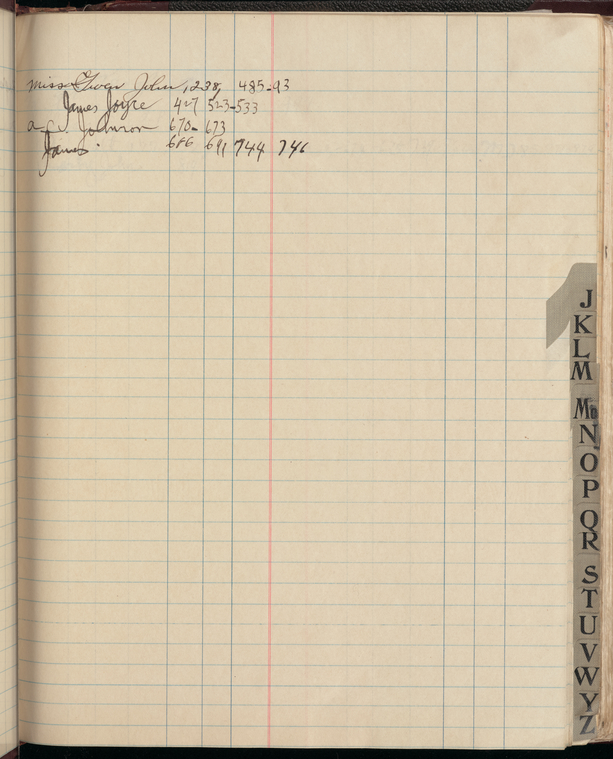 Miss Gwen John, 238, 485-93
James Joyce 427 523-533
a. Johnson 670-673
James. 686 691 744 746
J
K
L
M
Mc
N
O
P
Q
R
S
T
U
V
W
Y
Z